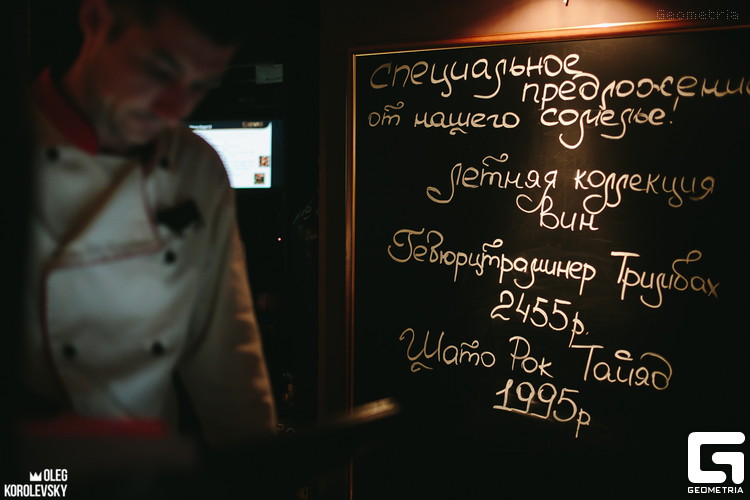 Geometria
специальное
предложение
от нашего сомелье!
Летняя коллекция
вин
Гевюрцтраминер Тримбах
2455р.
Шато Рок Тайяд
1995р
OLEG
KOROLEVSKY
G
GEOMETRIA